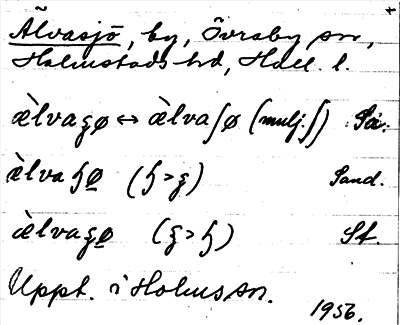 Älvasjö, by, Övraby sn,
Halmstads hd, Hall. l.
ælvaʒø ↔ ælvaʃø (mulj. ʃ)
ælvaɧø (ɧ > ʒ) Sand.
ælvaʒø (ʒ > ɧ) Sf.
Uppt. i Holms sn.
1956.